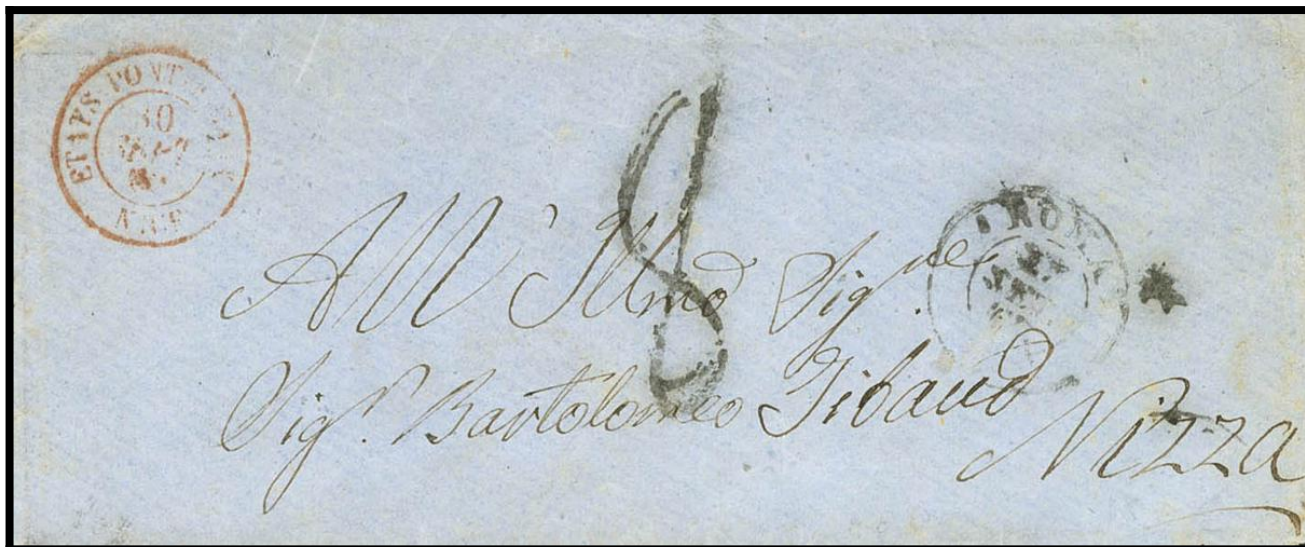 ETATS PONT.
30
NICE
8
ROMA
All' Illmo Sigre
Sigr. Bartolomeo Tibaud
Nizza